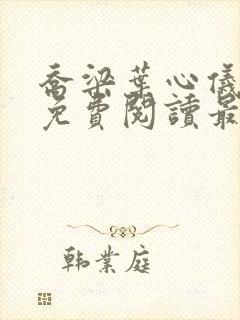 喬梁葉心儀
免費閱讀最
韩業庭